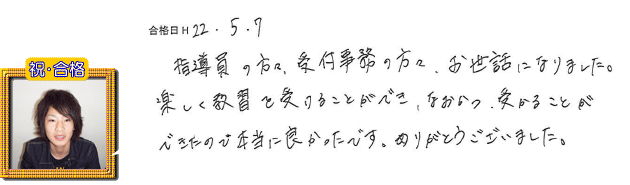 合格日 H 22.5.7
祝・合格
指導員の方々、受付事務の方々、お世話になりました。
楽しく教習を受けることができ、なおかつ、受かることが
できたので本当に良かったです。ありがとうございました。